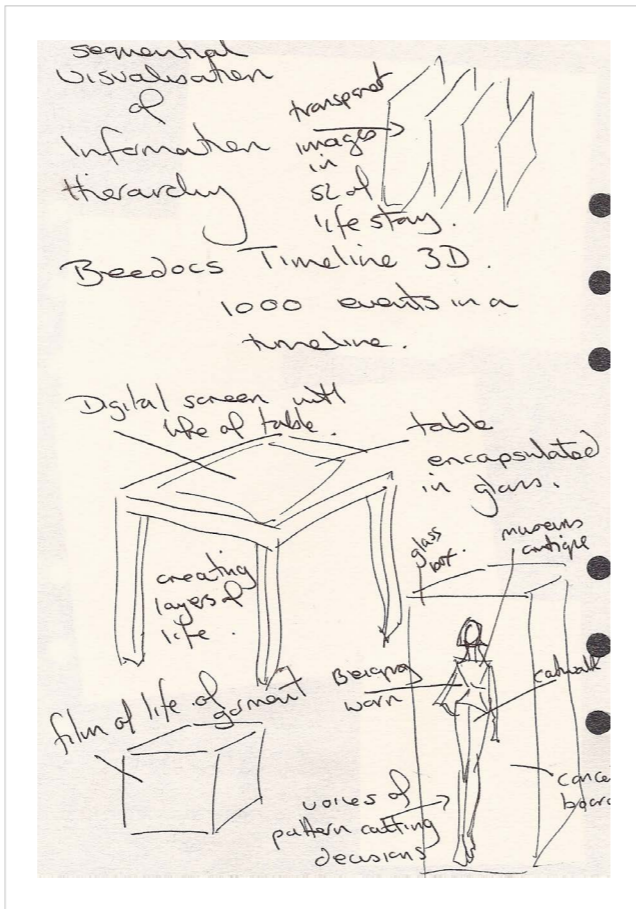 sequential
visualisation
of
Information
Hierarchy
transparent
images
in
of
life story.
Beedocs Timeline 3D.
1000 events in a
timeline.
Digital screen with
life of table.
table
encapsulated
in glass.
creating
layers of
life.
film of life of garment
glass
box.
museums
antique
worn
catwalk
voices of
pattern cutting
decisions